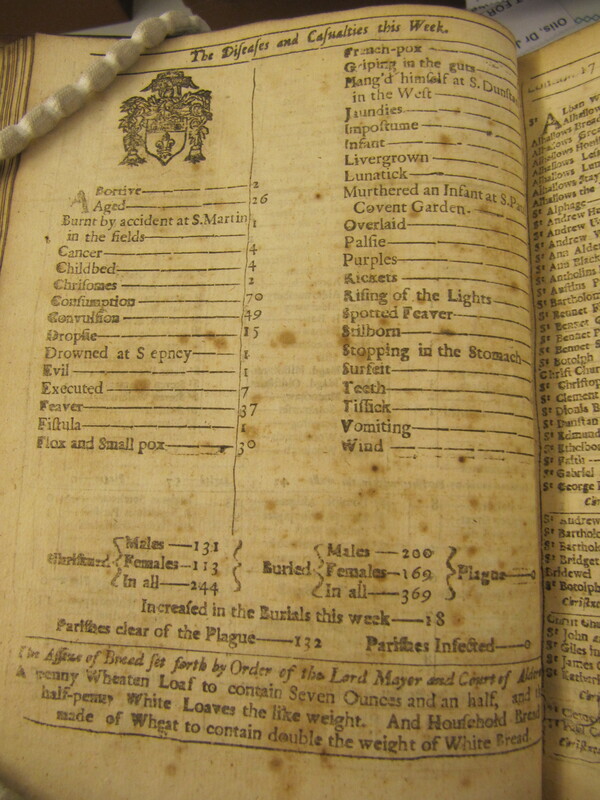 The Diseases and Casualties this Week.
Abortive 2
Aged 26
Burnt by accident at S. Martin
in the fields 1
Cancer 4
Childbed 4
Chrisomes 2
Consumption 70
Convulsion 49
Dropsie 15
Drowned at S epney 1
Evil 1
Executed 7
Feaver 37
Fistula 1
Flox and Small pox 30
French-pox
Griping in the guts
Hang'd himself at S. Dunsta
in the West
Jaundies
Impostume
Infant
Livergrown
Lunatick
Murthered an Infant at S. Pa
Covent Garden.
Overlaid
Palsie
Purples
Rickets
Rising of the Lights
Spotted Feaver
Stilborn
Stopping in the Stomach
Surfeit
Teeth
Tissick
Vomiting
Wind
Christned
Males 131
Females 113
In all 244
Buried
Males 200
Females 169
In all 369
Plague 0
Increased in the Burials this week 18
Parishes clear of the Plague 132 Parishes Infected 0
The Assize of Bread set forth by Order of the Lord Mayer and Court of Alder
A penny Wheaten Loaf to contain Seven Ounces and an half, and
half-penny White Loaves the like weight. And Houshold Bread
made of Wheat to contain double the weight of White Bread
St
Alban W
Alhallows
Alhallows Bread
Alhallows
Alhallows Honi
Alhallows
Alhallows
Alhallows Stay
Alhallows the
St Alphage
St Andrew H
St Andrew U
St Andrew W
St Ann Alder
St Ann Black
St Antholins
St Austins
St Bartholom
St Bennet F
St Bennet G
St Bennet
St Bennet S
St Botolph
Christ Chur
St Christop
St Clement
St Dionis B
St Dunstan
St Edmund
St Ethelbo
St Faith
St Gabriel
St George
St Andrew
St Bartholo
St Bartholo
St Bridget
Bridewel
St Botolph
St John
St Giles
St James
St Katheri